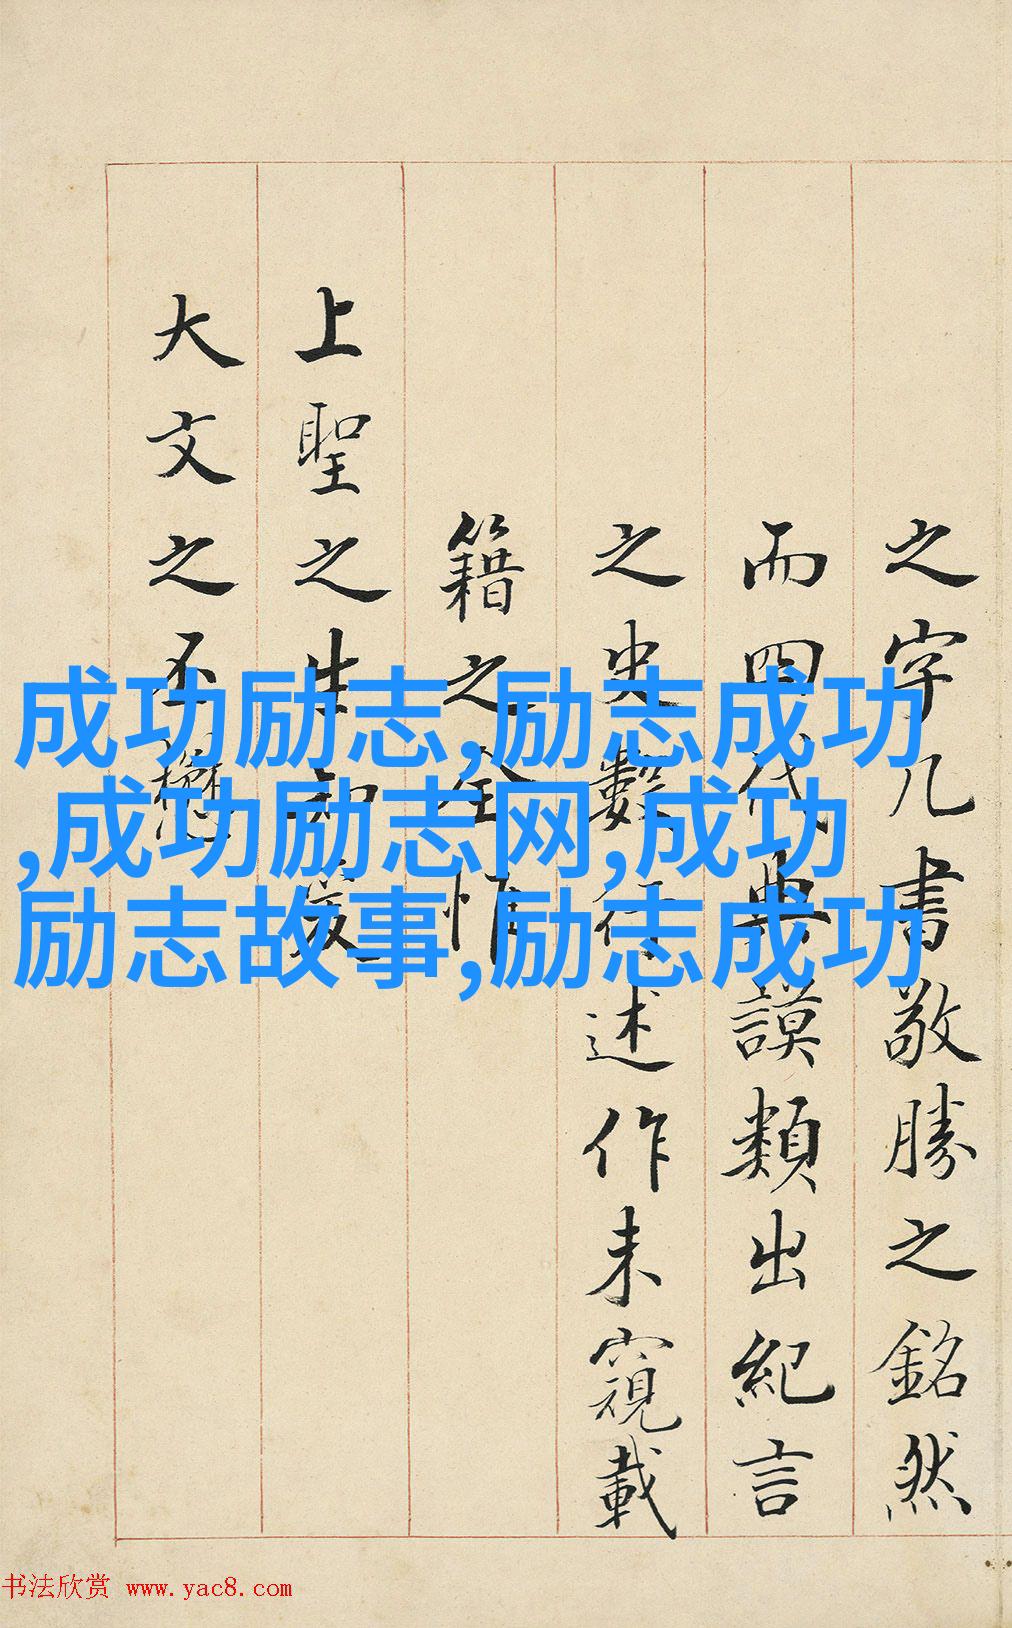 之字几書敬勝之銘然
而四代典謨類出紀言
之史數行述作未窺載
籍之全惟
上聖之生知爰
大文之丕懋
成功励志,励志成功
,成功励志网,成功
励志故事,励志成功
书法欣赏 www.yac8.com